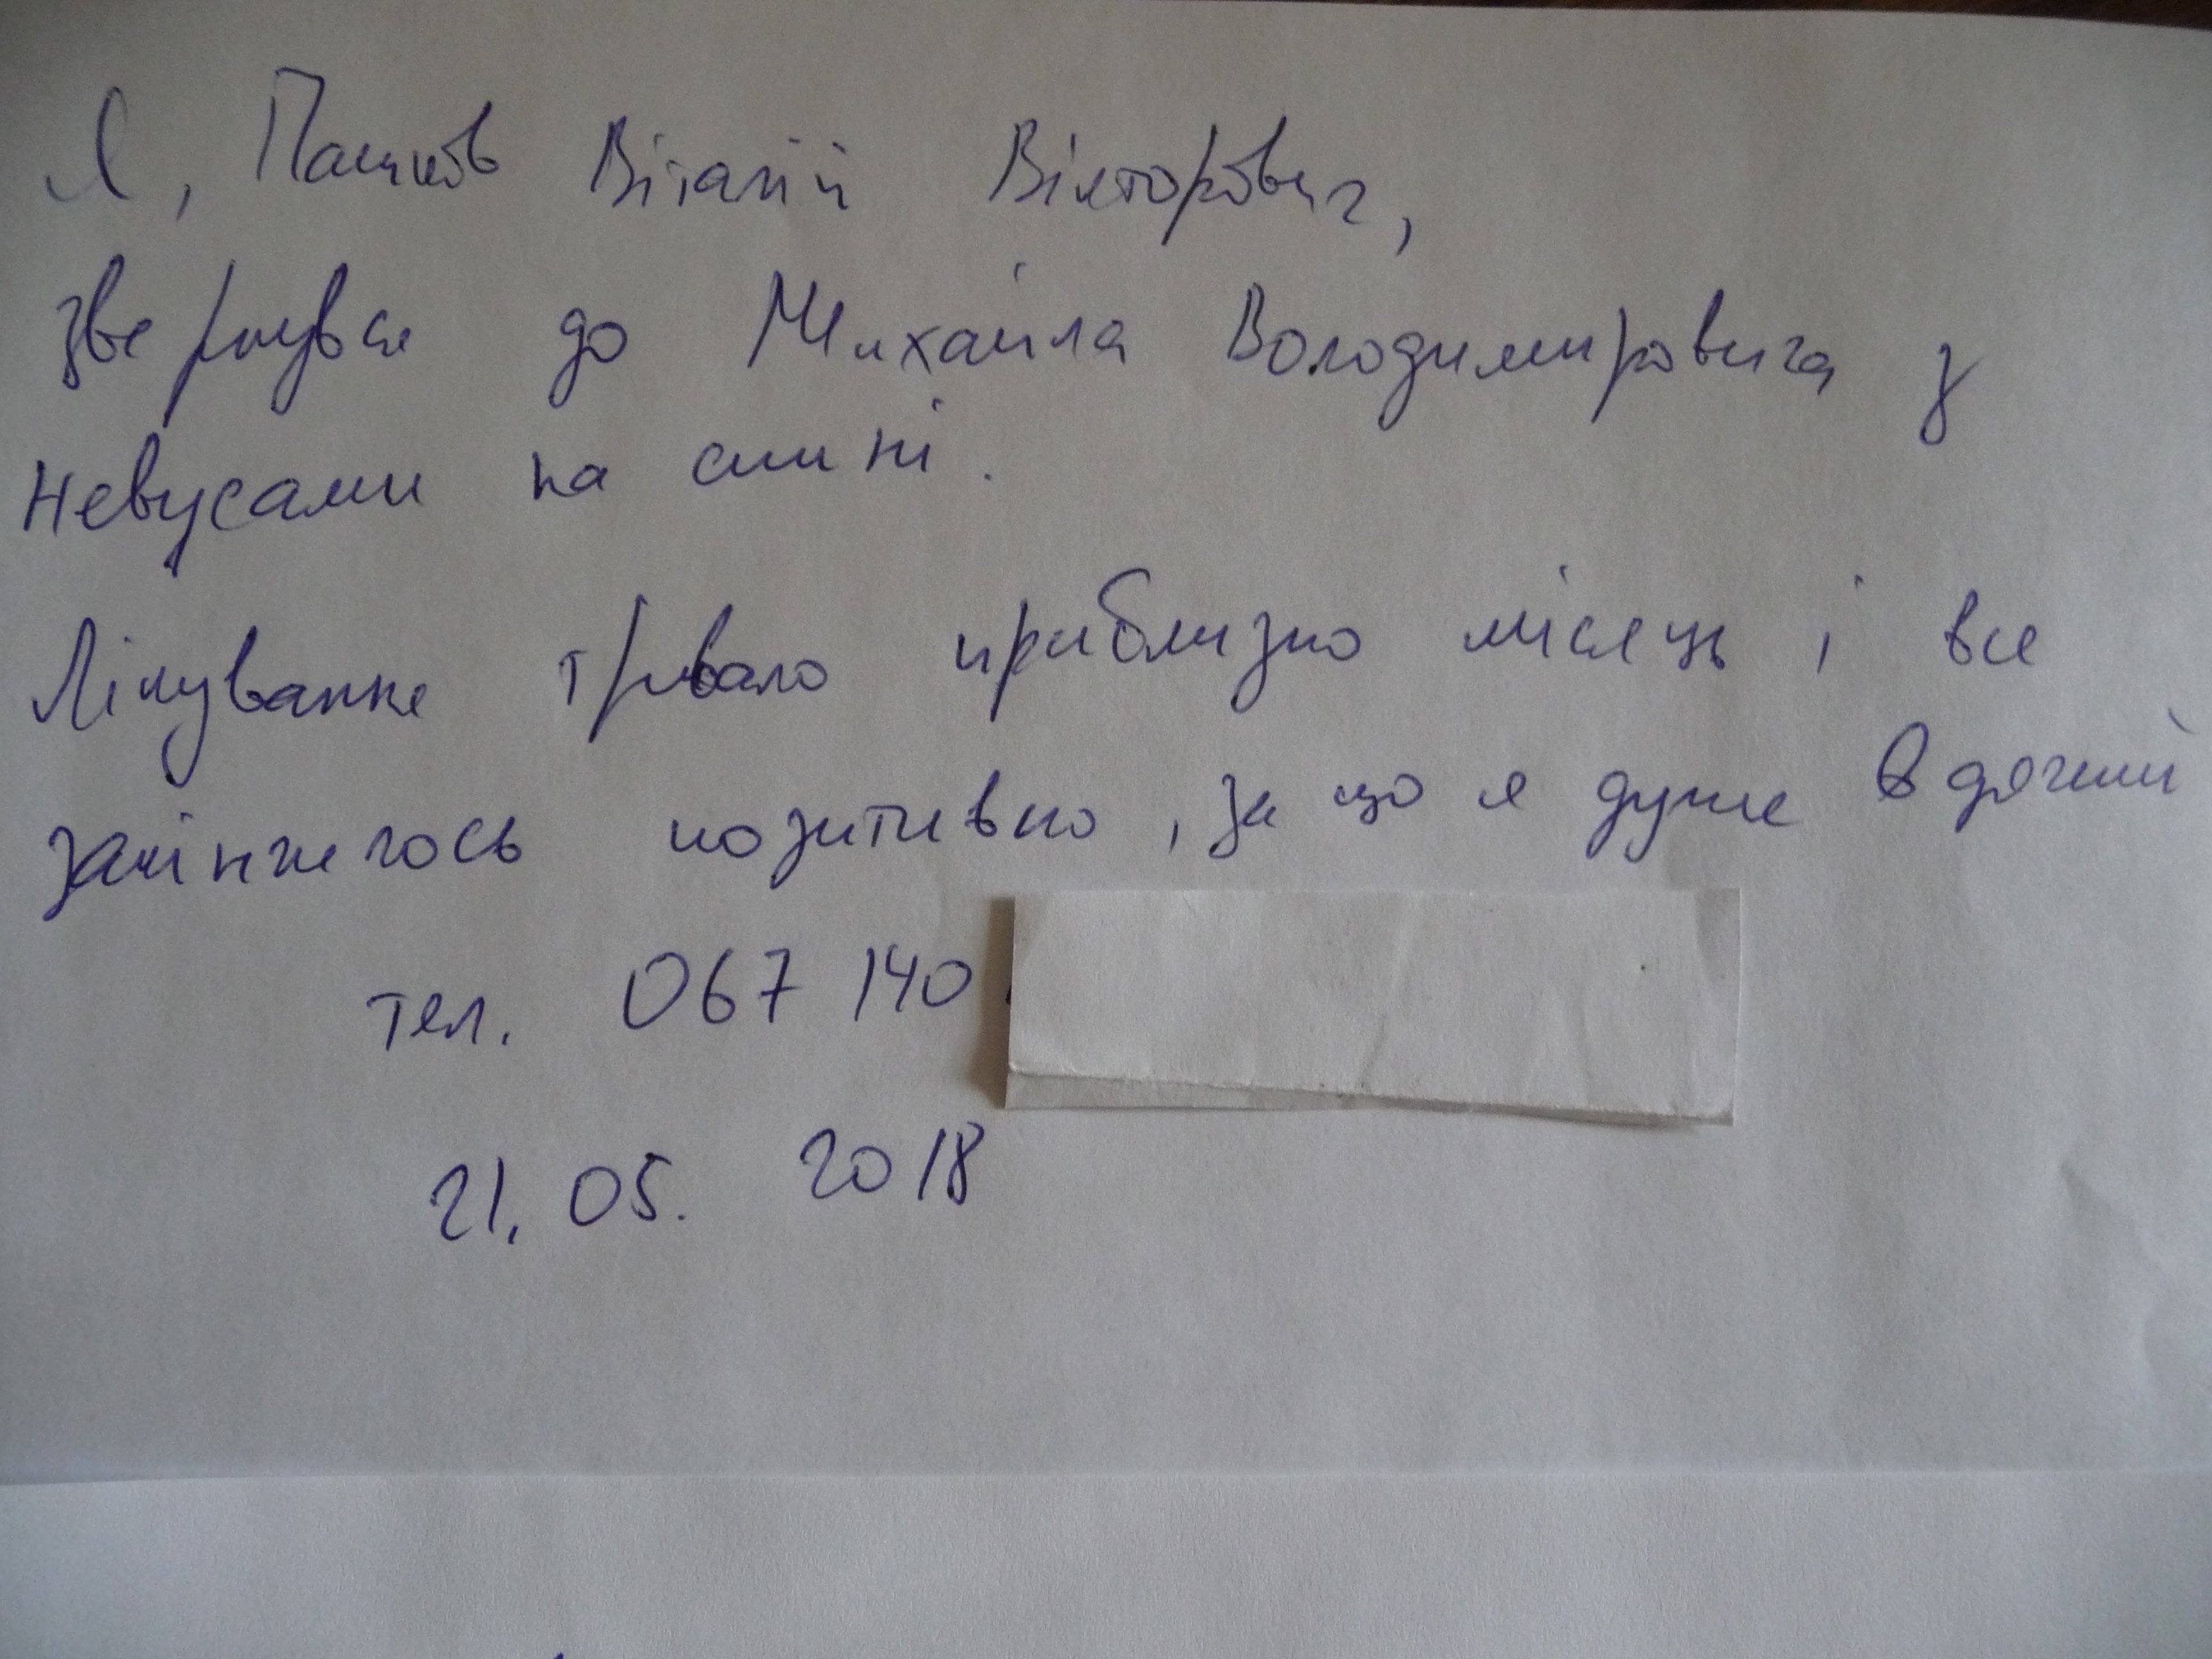 Я, Віталій Вікторович,
звернувся до Михайла Володимировича з
невусами на спині.
Лікування тривало приблизно місяць і все
закінчилось позитивно, за що я дуже вдячний
тел. 067 140
21. 05. 2018